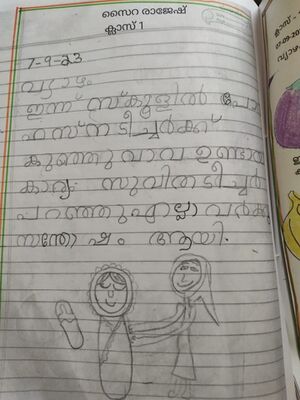 സൈറ രാജേഷ്
ക്ലാസ് 1
7-9-23
വ്യാഴം
ഇന്ന് സ്കൂളിൽ പോ
ഹസ്ന ടീച്ചർക്ക്
കുഞ്ഞു വാവ ഉണ്ടായ
കാര്യം സുവിത ടീച്ചർ
പറഞ്ഞു എല്ലാവർക്കും
സന്തോഷം ആയി.